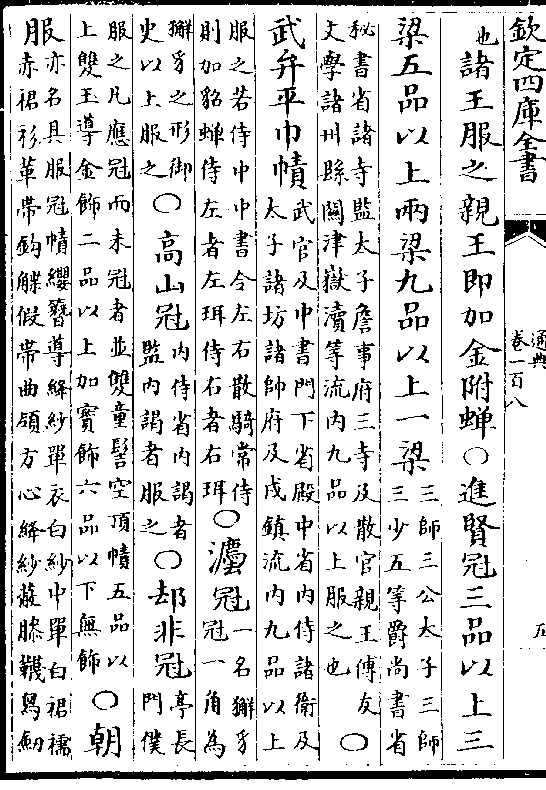 欽定四庫全書
通典
卷一百八
五
也諸王服之親王即加金附蝉〇進賢冠三品以上三
梁五品以上兩梁九品以上一梁
三師三公太子三師
三少五等爵尚書省
秘書省諸寺監太子詹事府三寺及散官親王傅友
文學諸州縣關津嶽瀆等流内九品以上服之也
〇
武弁平巾幘
武官及中書門下省殿中省内侍諸衛及
太子諸坊諸帥府及戍鎮流内九品以上
服之若侍中中書令左右散騎常侍
則加貂蝉侍左者左珥侍右者右珥
〇灋冠
一名獬豸
冠一角為
獬豸之形御
史以上服之
〇高山冠
内侍省内謁者
監内謁者服之
〇却非冠
亭長
門僕
服之凡應冠而未冠者並雙童髻空頂幘五品以
上雙玉導金飾二品以上加寳飾六品以下無飾
〇朝
服
亦名具服冠幘纓簪導絳紗單衣白紗中單白裙襦
赤裙衫革帶鈎䚢假帶曲領方心絳紗蔽膝韈舄劒